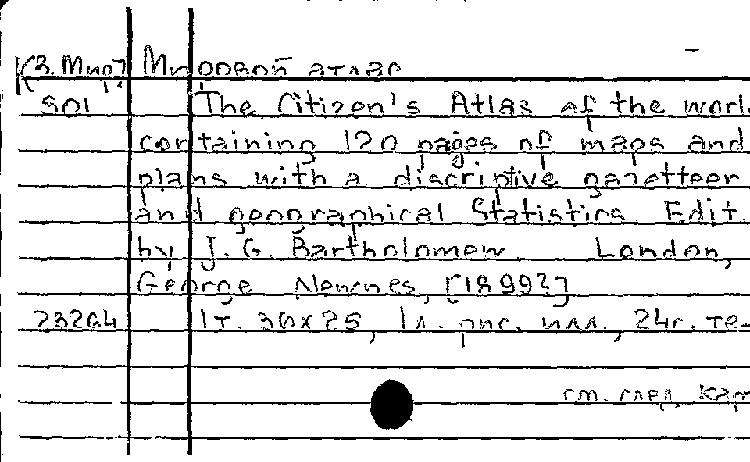 К(3.Мир) Мировой атлас
501 The Citizen's Atlas of the world
containing 120 pages of maps and
plans with a discriptive gazetteer
and geographical Statistics. Edit.
by J. G. Bartholomew. London,
George Newnes, [1899?]
23264 1т. 36х25, 1л. рис. илл., 24с. те
см. след. кар